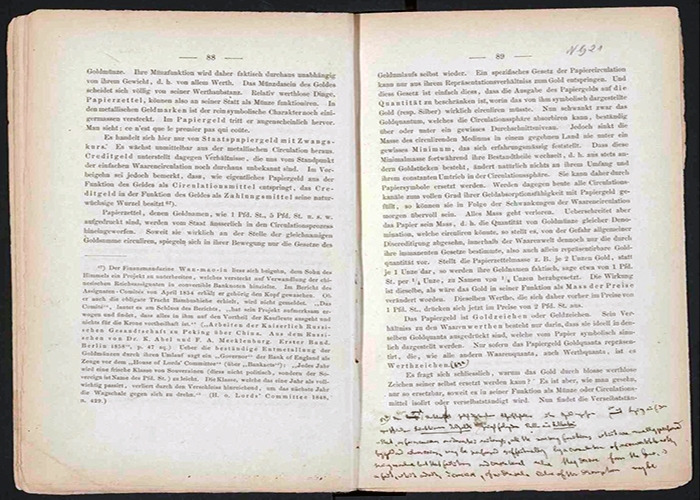 — 88 —
Goldmünze. Ihre Münzfunktion wird daher faktisch durchaus unabhängig
von ihrem Gewicht, d. h. von allem Werth. Das Münzdasein des Goldes
scheidet sich völlig von seiner Werthsubstanz. Relativ werthlose Dinge,
Papierzettel, können also an seiner Statt als Münze funktioniren. In
den metallischen Geldmarken ist der rein symbolische Charakter noch einiger-
massen versteckt. Im Papiergeld tritt er augenscheinlich hervor.
Man sieht: ce n'est que le premier pas qui coûte.
Es handelt sich hier nur von Staatspapiergeld mit Zwangs-
kurs. Es wächst unmittelbar aus der metallischen Circulation heraus.
Creditgeld unterstellt dagegen Verhältnisse, die uns vom Standpunkt
der einfachen Waarencirculation noch durchaus unbekannt sind. Im Vor-
beigehn sei jedoch bemerkt, dass, wie eigentliches Papiergeld aus der
Funktion des Geldes als Circulationsmittel entspringt, das Cre-
ditgeld in der Funktion des Geldes als Zahlungsmittel seine natur-
wüchsige Wurzel besitzt
Papierzettel, denen Geldnamen, wie 1 Pfd. St., 5 Pfd. St. u. s. w.
aufgedruckt sind, werden vom Staat äusserlich in den Circulationsprozess
hineingeworfen. Soweit sie wirklich an der Stelle der gleichnamigen
Goldsumme circuliren, spiegeln sich in ihrer Bewegung nur die Gesetze des
Der Finanzmandarine Wan-mao-in liess sich beigehn, dem Sohn des
Himmels ein Projekt zu unterbreiten, welches versteckt auf Verwandlung der chi-
nesischen Reichsassignaten in convertible Banknoten hinzielte. Im Bericht des
Assignaten-Comités vom April 1854 erhält er gehörig den Kopf gewaschen. Ob
er auch die obligate Tracht Bambushiebe erhielt, wird nicht gemeldet. „Das
Comité“, lautet es am Schluss des Berichts, „hat sein Projekt aufmerksam er-
wogen und findet, dass alles in ihm auf den Vortheil der Kaufleute ausgeht und
nichts für die Krone vortheilhaft ist.“ („Arbeiten der Kaiserlich Russi-
schen Gesandtschaft zu Peking über China. Aus dem Russi-
schen von Dr. K. Abel und F. A. Mecklenburg. Erster Band.
Berlin 1858“, p. 47 sq.) Ueber die beständige Entmetallung der
Goldmünzen durch ihren Umlauf sagt ein „Governor“ der Bank of England als
Zeuge vor dem „House of Lords' Committee“ (über „Bankacts“): „Jedes Jahr
wird eine frische Klasse von Souverainen (diess nicht politisch, sondern der So-
vereign ist Name des Pfd. St.) zu leicht. Die Klasse, welche das eine Jahr als voll-
wichtig passirt, verliert durch den Verschleiss hinreichend, um das nächste Jahr
die Wagschale gegen sich zu drehn.“ (H. o. Lords' Committee 1848,
n. 429.)
— 89 —
Goldumlaufs selbst wieder. Ein spezifisches Gesetz der Papiercirculation
kann nur aus ihrem Repräsentationsverhältniss zum Gold entspringen. Und
diess Gesetz ist einfach diess, dass die Ausgabe des Papiergelds auf die
Quantität zu beschränken ist, worin das von ihm symbolisch dargestellte
Gold (resp. Silber) wirklich circuliren müsste. Nun schwankt zwar das
Goldquantum, welches die Circulationssphäre absorbiren kann, beständig
über oder unter ein gewisses Durchschnittsniveau. Jedoch sinkt die
Masse des circulirenden Mediums in einem gegebnen Land nie unter ein
gewisses Minimum, das sich erfahrungsmässig feststellt. Dass diese
Minimalmasse fortwährend ihre Bestandtheile wechselt, d. h. aus stets an-
dern Goldstücken besteht, ändert natürlich nichts an ihrem Umfang und
ihrem constanten Umtrieb in der Circulationssphäre. Sie kann daher durch
Papiersymbole ersetzt werden. Werden dagegen heute alle Circulations-
kanäle zum vollen Grad ihrer Geldabsorptionsfähigkeit mit Papiergeld ge-
füllt, so können sie in Folge der Schwankungen der Waarencirculation
morgen übervoll sein. Alles Mass geht verloren. Ueberschreitet aber
das Papier sein Mass, d. h. die Quantität von Goldmünze gleicher Deno-
mination, welche circuliren könnte, so stellt es, von der Gefahr allgemeiner
Discreditirung abgesehn, innerhalb der Waarenwelt dennoch nur die durch
ihre immanenten Gesetze bestimmte, also auch allein repräsentirbare Gold-
quantität vor. Stellt die Papierzettelmasse z. B. je 2 Unzen Gold, statt
je 1 Unze dar, so werden ihre Geldnamen faktisch, sage etwa von 1 Pfd.
St. per ¼ Unze, zu Namen von ⅛ Unzen herabgesetzt. Die Wirkung
ist dieselbe, als wäre das Gold in seiner Funktion als Mass der Preise
verändert worden. Dieselben Werthe, die sich daher vorher im Preise von
1 Pfd. St., drücken sich jetzt im Preise von 2 Pfd. St. aus.
Das Papiergeld ist Goldzeichen oder Geldzeichen. Sein Ver-
hältniss zu den Waarenwerthen besteht nur darin, dass sie ideell in den-
selben Goldquantis ausgedrückt sind, welche vom Papier symbolisch sinn-
lich dargestellt werden. Nur sofern das Papiergeld Goldquanta repräsen-
tirt, die, wie alle andern Waarenquanta, auch Werthquanta, ist es
Werthzeichen
Es fragt sich schliesslich, warum das Gold durch blosse werthlose
Zeichen seiner selbst ersetzt werden kann? Es ist aber, wie man gesehn,
nur so ersetzbar, soweit es in seiner Funktion als Münze oder Circulations-
mittel isolirt oder verselbstständigt wird. Nun findet die Verselbststän-